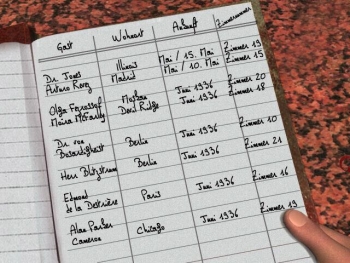 Gast Wohnort Ankunft Zimmernummer
Dr. Jones Illinois Mai / 15. Mai Zimmer 19
Arturo Madrid Mai / 10. Mai Zimmer 15
Olga Moskau Juni 1936 Zimmer 20
Moira Devil Ridge Juni 1936 Zimmer 18
Dr. von
Berlin Juni 1936 Zimmer 10
Herr Blitzstrum Berlin Juni 1936 Zimmer 21
Edmond
de la Paris Juni 1936 Zimmer 16
Alan Parker
Cameron Chicago Juni 1936 Zimmer 19